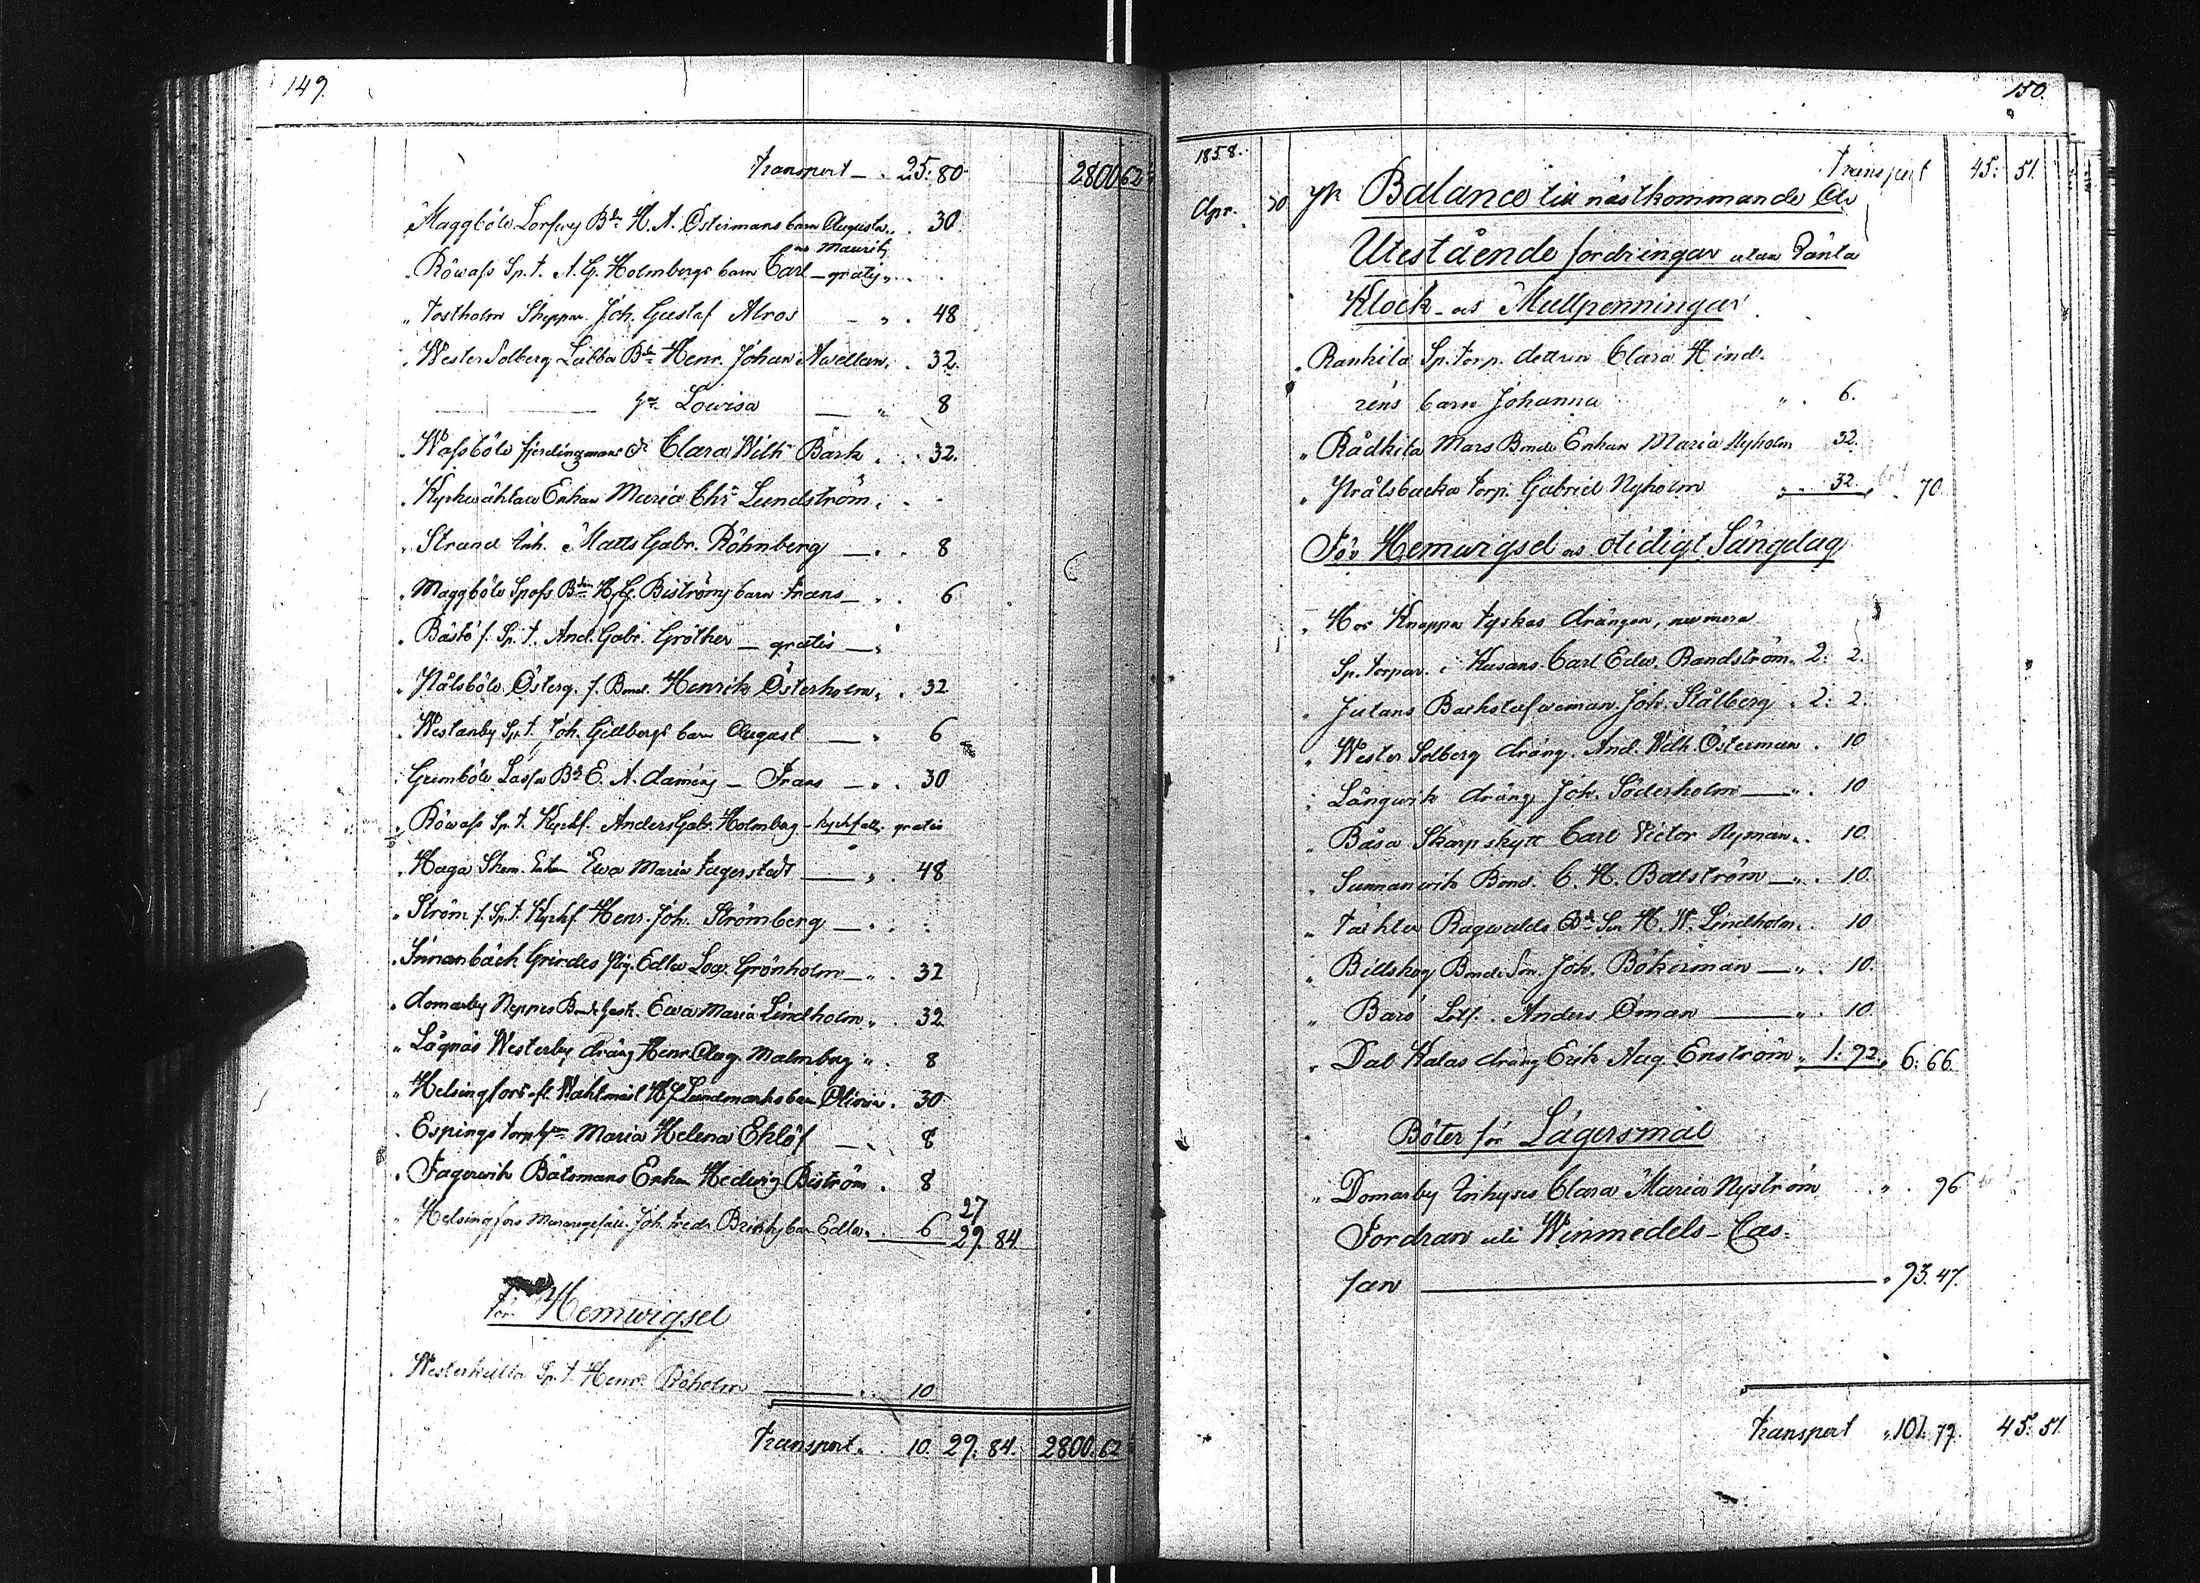 149.
Transport — . 25: 80. 2800 62
Maggböle Bde H. A. Östermans barn Augusta . 30.
Röwass Sp. T. A. G. Holmbergs barn Carl Mauritz — gratis „
„ Tostholm Skeppar. Joh. Gustaf Alros — „ . 48
„ Wester Solberg Labba Bde Henr. Johan Awellan . 32.
Lowisa — „ 8
„ Wassböle fjerdingmans Clara Wilh. Bärk . 32.
„ Enkan Maria Chr. Lundström . -
„ Strand Inh. Matts Gabr. Röhnberg — . 8
„ Maggböle Spofs Bden Biströms barn Frans — „ . 6
„ Båstö f. Sp. T. And. Gabr. Gröther — gratis — „
„ Pålsböle Österg. f. Bond. Henrik Österholm „ . 32
„ Westanby Sp. T. Joh. Gillbergs barn August — „ 6
Grimböle Lassa Bde E. A. — Frans — . 30
„ Röwass Sp. T. Kyrkf. Anders Gab. Holmberg — gratis
„ Haga Enkan Ewa Maria Fagerstedt — „ . 48
„ Ström f. Sp. T. Kyrkf. Henr. Joh. Strömberg — . .
„ Innanbäck Grindes Edla Low. Grönholm — „ . 32
„ Domarby Neppers Ewa Maria Lindholm „ . 32
„ Lågnäs Westerby dräng Henr. Aug. Malmberg „ . 8
„ Helsingfors Lundmarks barn Olivia . 30
„ Espings torp Maria Helena Eklöf — . 8
„ Fagerwik Båtsmans Enkan Hedwig Biström . 8
27
„ Helsingfors Joh. Fredr. barn Edla . 6 29. 84.
för Hemwigsel
„ Westerkulla Sp. T. Henr. Röholm — . 10
Transport . 10. 29: 84. 2800: 62
150.
1858. Transport 45: 51.
Apr. 30 Balance till nästkommande År
Utestående fordringar utan Ränta
Klock- och Mullpenningar
„ Rankila Sp. torp. dottren Clara Hind-
réns barn Johanna „ . 6.
„ Rådkila Mars Bonde Enkan Maria Nyholm 32.
„ Prålsbacka Torp. Gabriel Nyholm „ . 32. „ . 70.
För Hemwigsel och otidigt Sängelag
„ Hos Knappa Tyskas drängen, numera
Sp. torpar. i Kusans Carl Edw. Randström . 2: 2.
„ Jutans Backstufweman. Joh. Stålberg . 2: 2.
„ Wester Solberg dräng. And. Wilh. Österman . 10
„ Långwik dräng Joh. Söderholm — „ . 10
„ Båsa Skarpskytt Carl Victor Nyman . 10.
„ Sunnanwik Bond. C. H. Bollström — „ . 10.
„ Täkter Ragwalds Bde Son H. W. Lindholm . 10
„ Billskog Bonde Son. Joh. Bökerman — „ . 10.
„ Barö Lotf. Anders Öman — „ . 10.
„ Dal Kalas dräng Erik Aug. Enström „ 1: 92. „ 6: 66.
Böter för Lägersmål
„ Domarby Inhyses Clara Maria Nyström „ . 96
Fordran uti Winmedels-Cas-
san — „ 93. 47.
Transport „ 101. 79. 45: 51.